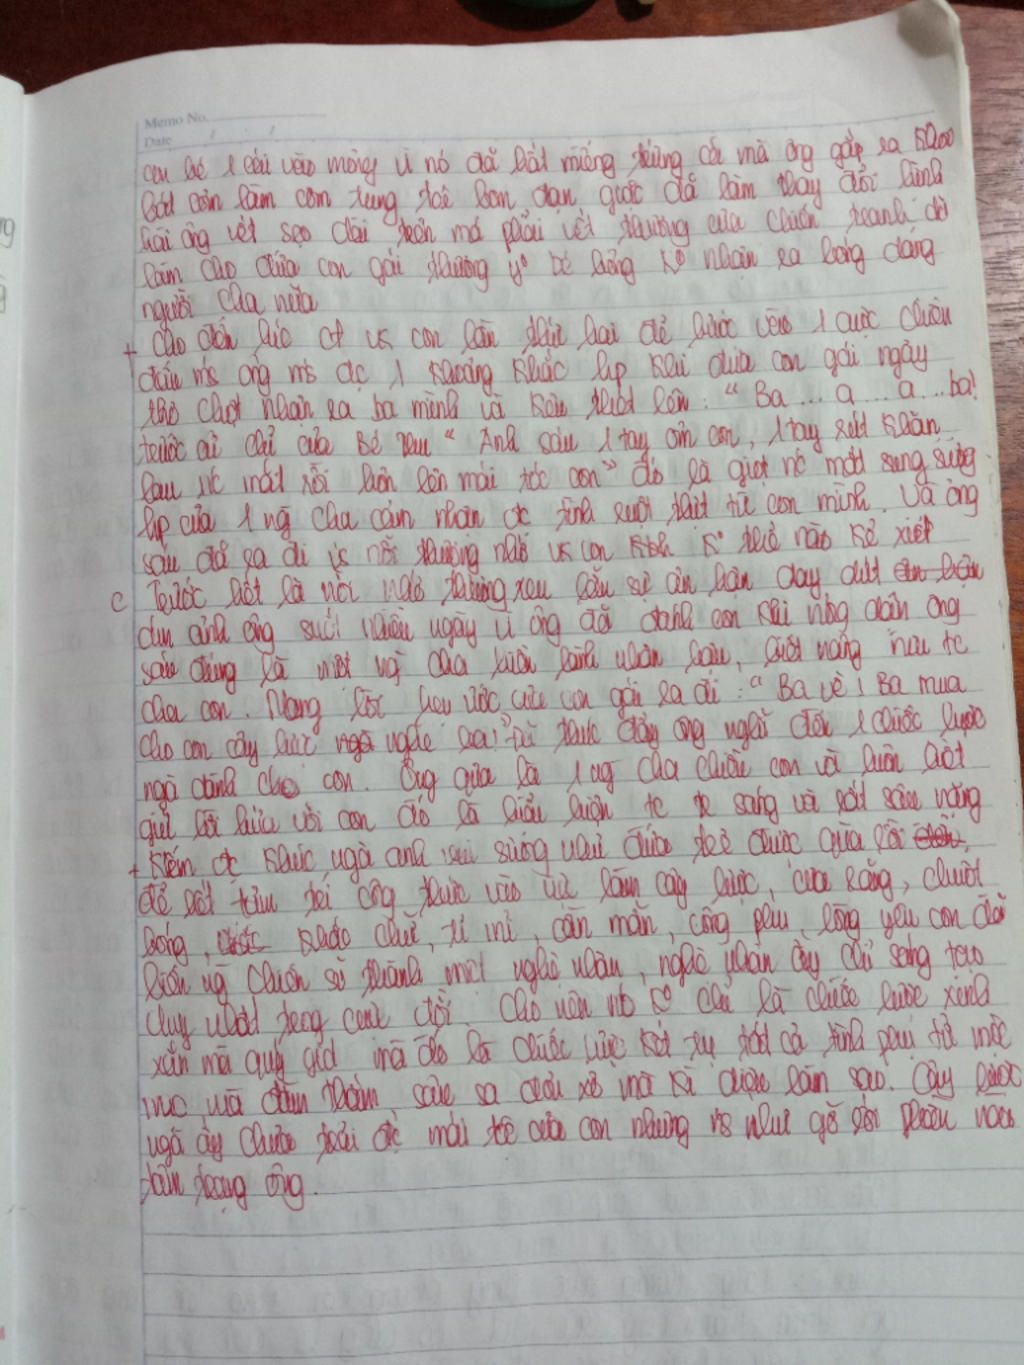 Memo No.
Date / /
con bé 1 cái vào mông vì nó đã hất miếng trứng cá mà ông gắp ra khỏi
bát cơm làm cơm tung toé bom đạn giặc đã làm thay đổi hình
hài ông vết sẹo dài trên má phải vết thương của chiến tranh đã
làm cho đứa con gái thương y° bé bỏng k° nhận ra bóng dáng
người cha nữa
+ Cho đến lúc ct vs con lần thứ hai để bước vào 1 cuộc chiến
đấu ms ông ms đc 1 khoảng khắc hp khi đứa con gái ngây
thơ chợt nhận ra ba mình và kêu thét lên: "Ba... a... a... ba!
trước cử chỉ của Bé Thu "Anh sáu 1 tay ôm con, 1 tay rút khăn
lau nc mắt rồi hôn lên mái tóc con" đó là giọt nc mắt sung sướng
hp của 1 ng cha cảm nhận đc tình ruột thịt từ con mình. Và ông
sáu đã ra đi vs nỗi thương nhớ vs con k° thể nào kể xiết
c Trước hết là nỗi nhớ thương xen lẫn sự ân hận day dứt
ám ảnh ông suốt nhiều ngày vì ông đã đánh con khi nóng giận ông
sáu đúng là một ng cha hiền lành nhân hậu, nâng niu tc
cha con. Mang lời của con gái ra đi: "Ba về! Ba mua
cho con cây lược ngà nghe ba!" đã thúc đẩy ông nghĩ đến 1 chiếc lược
ngà dành cho con. Ông quả là 1 ng cha chiều con và luôn biết
giữ lời hứa với con đó là biểu hiện tc trong sáng và rất sâu nặng
+ Kiếm đc khúc ngà anh vui sướng như đứa trẻ được quà rồi
để hết tâm trí công sức vào việc làm cây lược, cưa răng, chuốt
bóng, khéo chữ, tỉ mỉ, cần mẫn, công phu, lòng yêu con đã
biến ng chiến sĩ thành một nghệ nhân, nghệ nhân ấy chỉ sáng tạo
duy nhất trong cuộc đời. Cho nên nó k° chỉ là chiếc lược xinh
xắn mà quý giá mà đó là chiếc lược kết tụ tất cả tình phụ tử mộc
mạc mà đằm thắm, sâu xa mà kì diệu làm sao. Cây lược
ngà ấy chưa trải đc mái tóc của con nhưng ns như gỡ rối phần nào
tâm trạng ông.